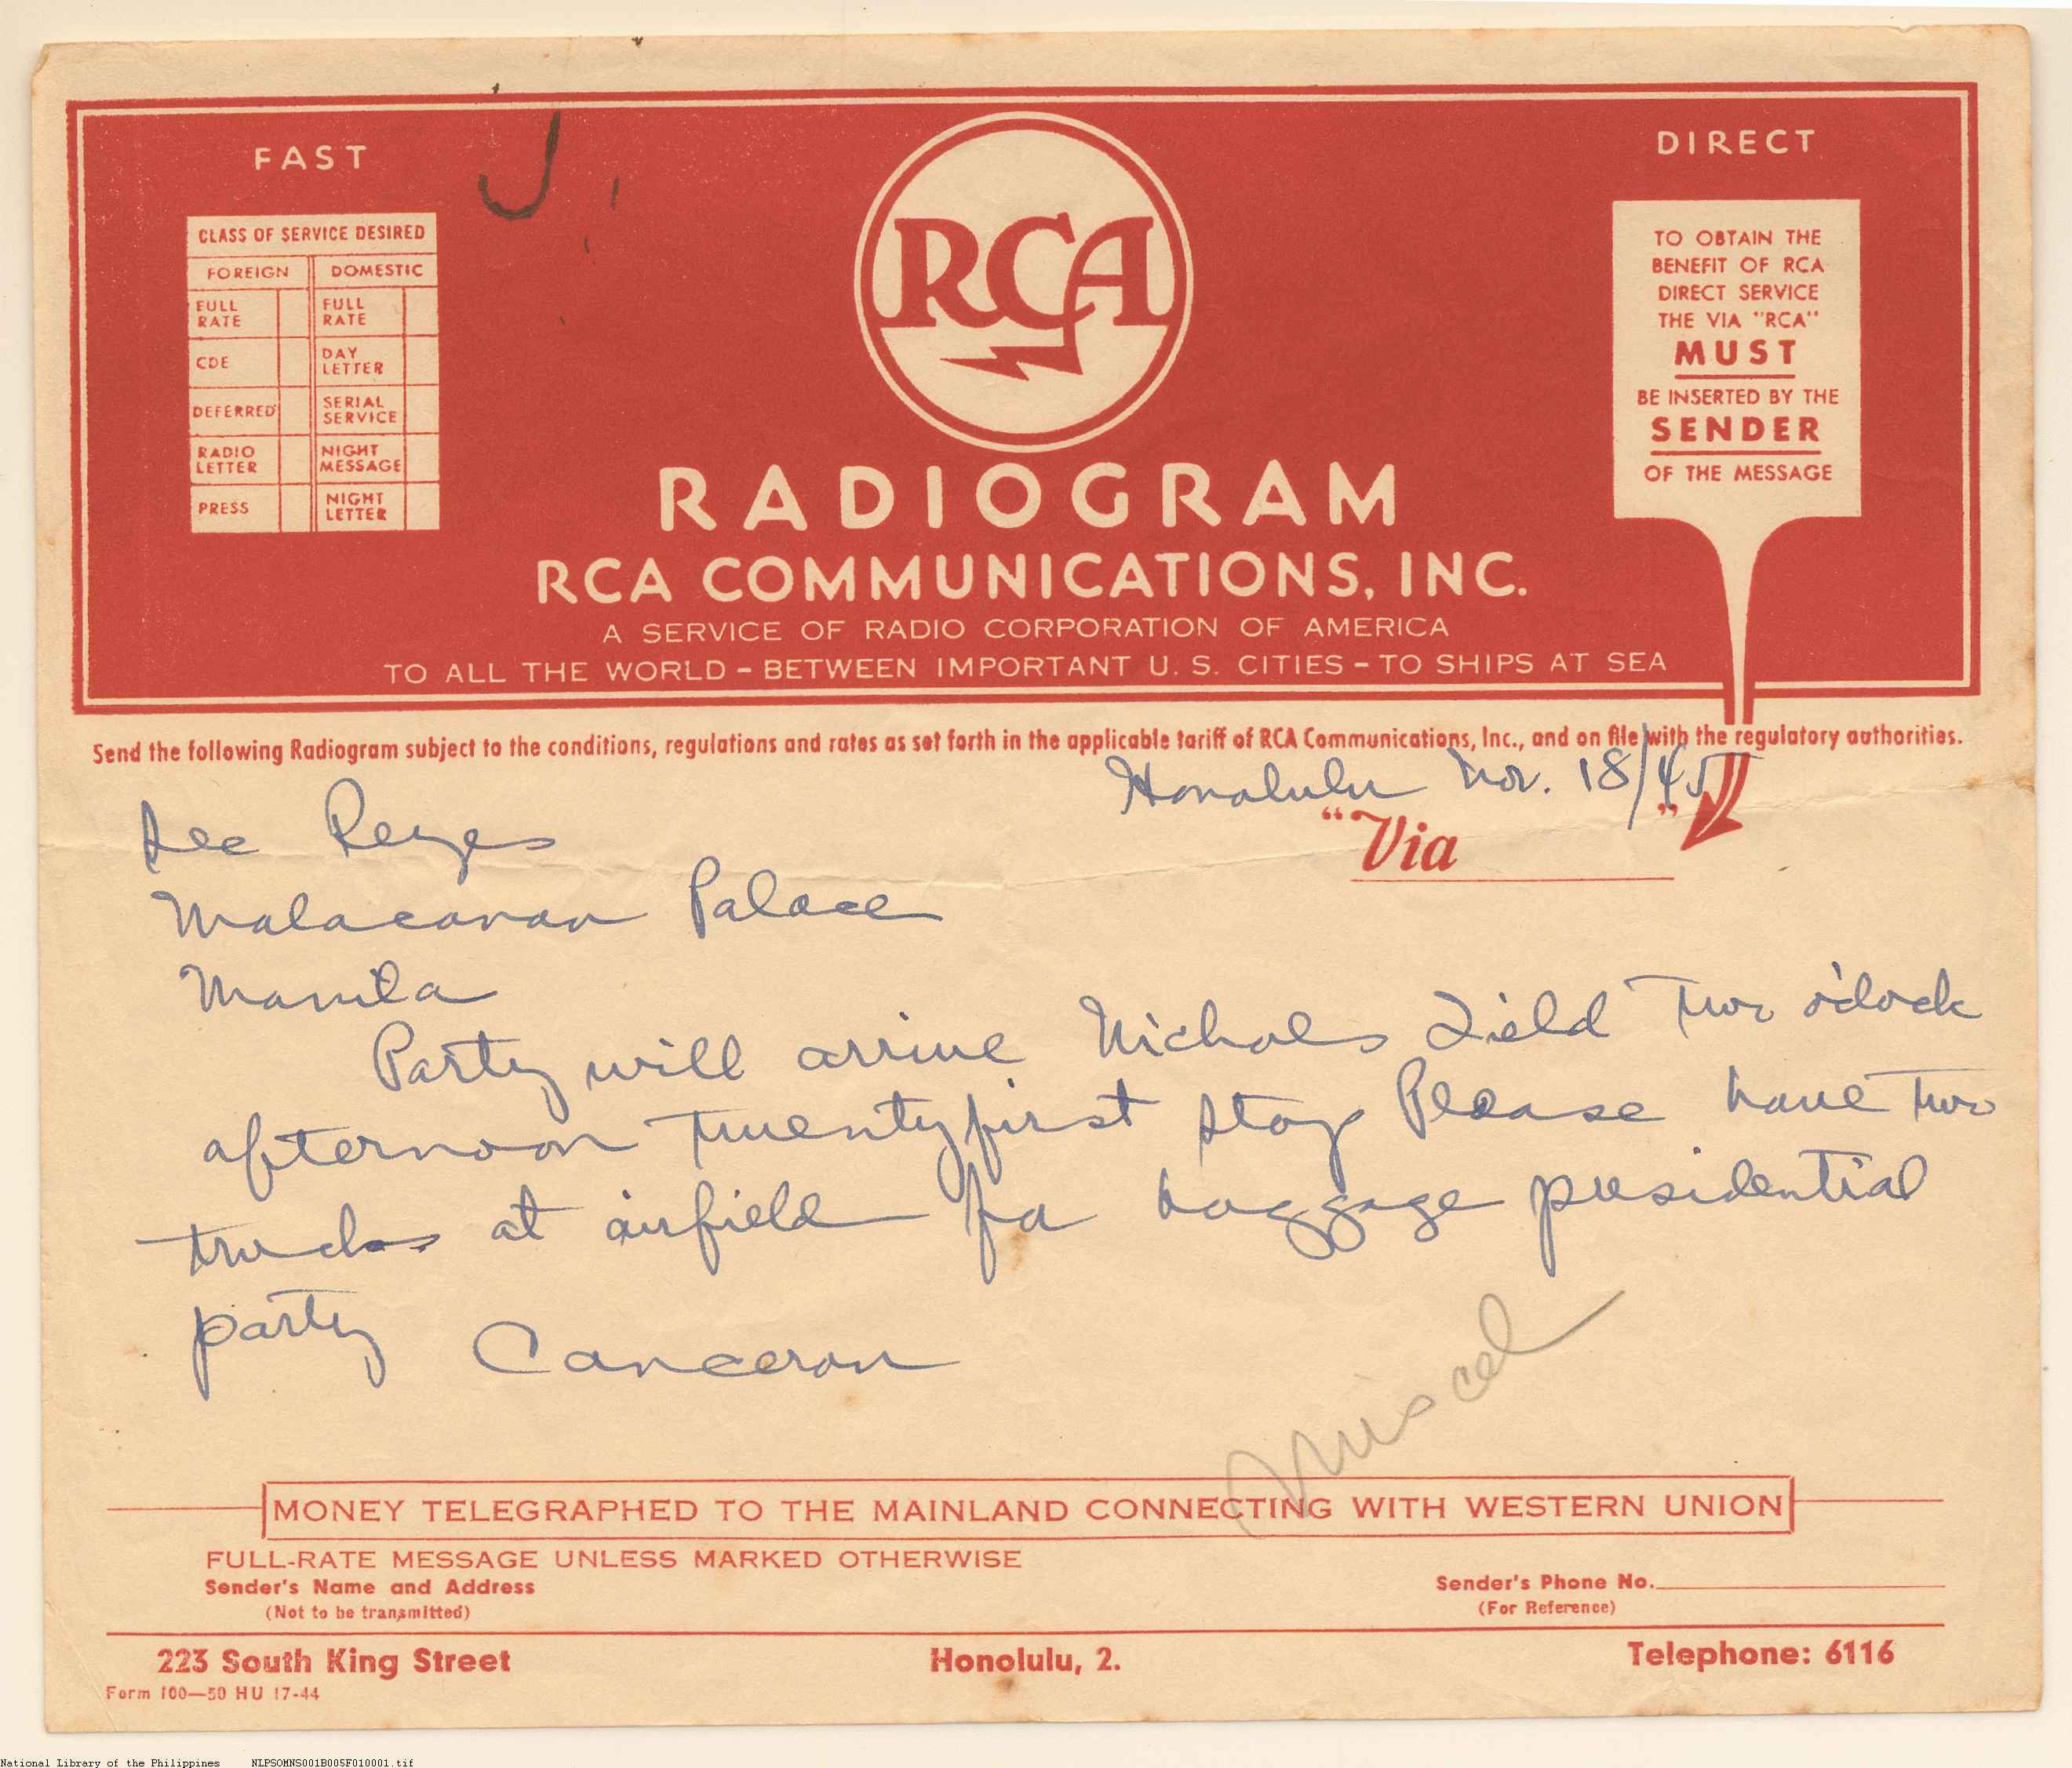 J.
FAST
DIRECT
CLASS OF SERVICE DESIRED
FOREIGN DOMESTIC
FULL RATE FULL RATE
CDE DAY LETTER
DEFERRED SERIAL SERVICE
RADIO LETTER NIGHT MESSAGE
PRESS NIGHT LETTER
RCA
TO OBTAIN THE
BENEFIT OF RCA
DIRECT SERVICE
THE VIA "RCA"
MUST
BE INSERTED BY THE
SENDER
OF THE MESSAGE
RADIOGRAM
RCA COMMUNICATIONS, INC.
A SERVICE OF RADIO CORPORATION OF AMERICA
TO ALL THE WORLD – BETWEEN IMPORTANT U. S. CITIES – TO SHIPS AT SEA
Send the following Radiogram subject to the conditions, regulations and rates as set forth in the applicable tariff of RCA Communications, Inc., and on file with the regulatory authorities.
Honolulu Nov. 18/45
"Via "
Sec Reyes
Malacanan Palace
Manila
Party will arrive Nichols Field Two o'clock
afternoon Twentyfirst stop Please have Two
trucks at airfield for baggage presidential
party Canceran
Miscel
MONEY TELEGRAPHED TO THE MAINLAND CONNECTING WITH WESTERN UNION
FULL-RATE MESSAGE UNLESS MARKED OTHERWISE
Sender's Name and Address
(Not to be transmitted)
Sender's Phone No.
(For Reference)
223 South King Street Honolulu, 2. Telephone: 6116
Form 100—50 HU 17-44
National Library of the Philippines NLPSOMNS001B005F010001.tif